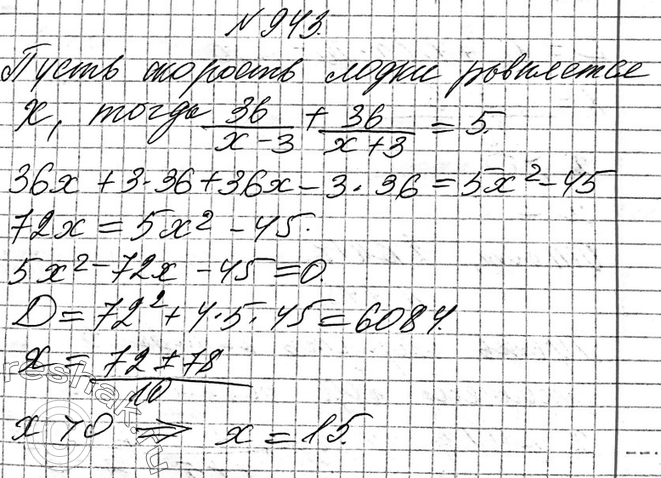 № 943.
Пусть скорость лодки равняется
x, тогда 36/(x-3) + 36/(x+3) = 5.
36x + 3·36 + 36x - 3·36 = 5x² - 45
72x = 5x² - 45.
5x² - 72x - 45 = 0.
D = 72² + 4·5·45 = 6084.
x = (72 ± 78)/10
x > 0 ⇒ x = 15.
reshak.ru